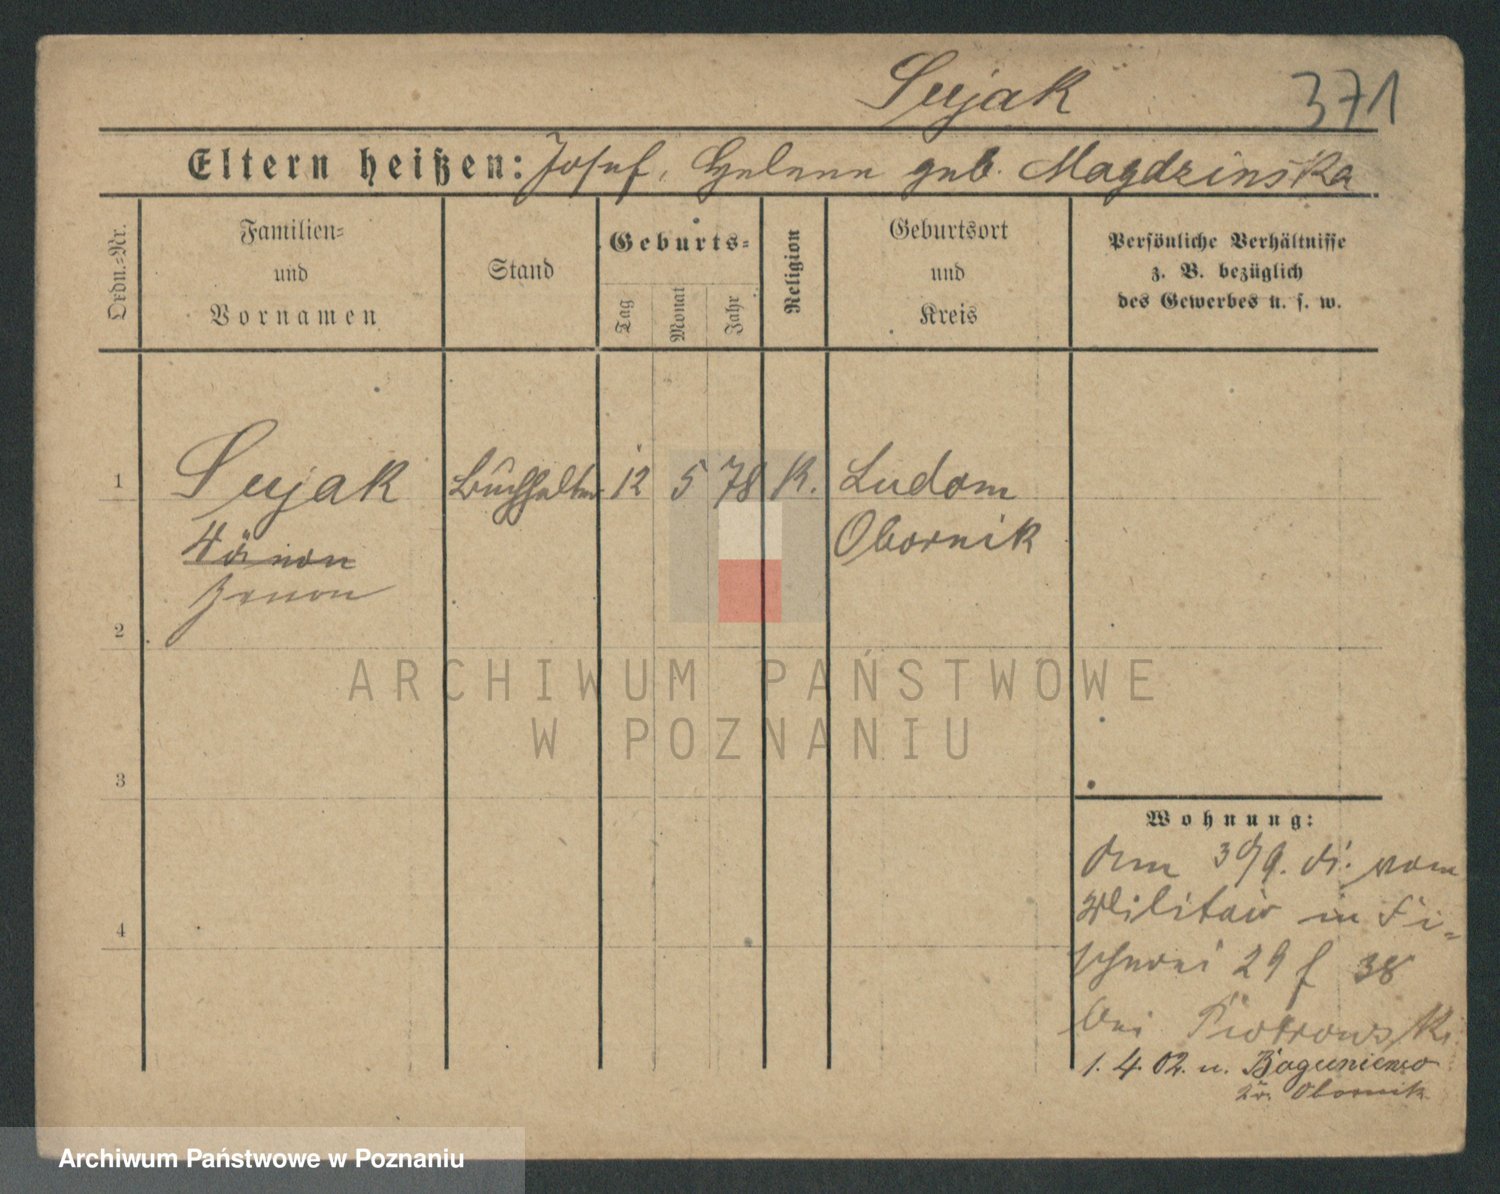 Sujak 371
Eltern heißen: Josef, Helene geb. Magdzinska
Ordn.-Nr.
Familien-
und
Vornamen
Stand
Geburts-
Tag
Monat
Jahr
Religion
Geburtsort
und
Kreis
Persönliche Verhältnisse
z. B. bezüglich
des Gewerbes u. s. w.
1 Sujak Buchhalter 12 5 78 K. Ludom
Obornik
Zenon
2
3
4
Wohnung:
vom
Militair in Fi-
scherei 29 f 38
bei Piotrowski
1. 4. 02. n. Boguniewo
Kr. Obornik
ARCHIWUM PAŃSTWOWE
W POZNANIU
Archiwum Państwowe w Poznaniu